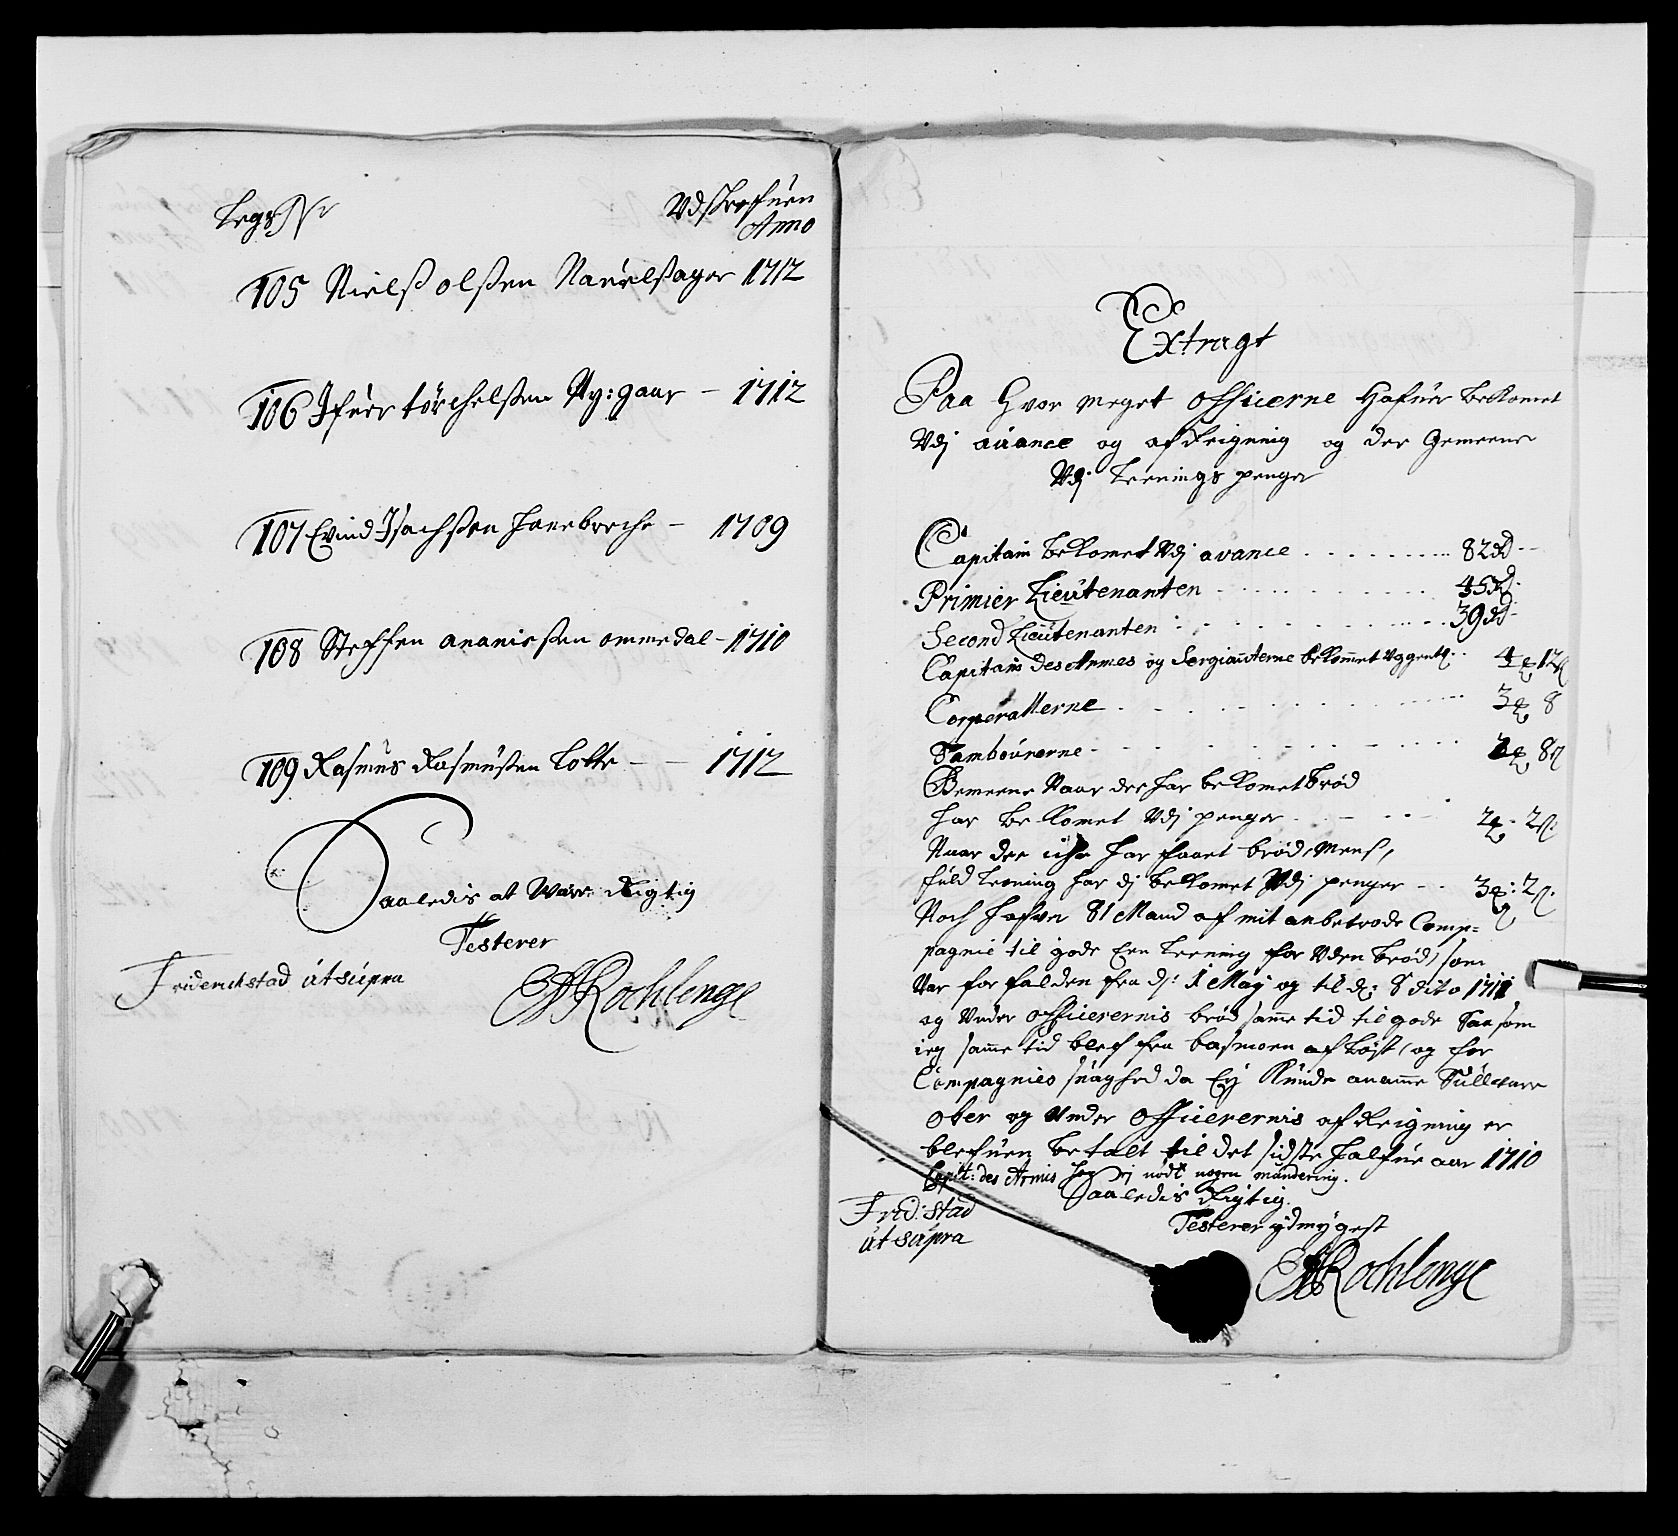 Legs Nr
Udskrefuen
Anno
105 Nielß olßen Nauelßager 1712
106 Ifuer törchelßen Ny: gaar - 1712
107 Evind Isachßen Hanebreche - 1709
108 Steffen ananisßen ommedal - 1710
109 Rasmus Rasmußen Lotte - - 1712
Saaledis at Være Rigtig
Testerer
Friderichstad út súpra
Rochlenge
Extragt
Paa Hvor meget officerne Hafuer bekomet
Udj auance og afReigning og der Gemeene
Udj Leenings penger
Capitain bekomet Udj avance 82 Rd
Primier Lieutenanten 45 Rd
Second Lieutenanten 39 Rd
Capitain des Armes og Sergianterne bekommet Uggentl. 4 12
Corporallerne 3 8
Tambourerne 8
Gemeene Naar der har bekomet brød
har bekomet Udj penger 2 2
Naar der iche har faaet brød, Mens,
fuld Leening har dj bekomet Udj penger 3 2
Noch Hafver 81 Mand af mit anbetrode Comp=
pagnie til gode Een Leening for Uden brød, som
Var forfalden fra d: 1 Maj og til d: 8 dito 1711
og Under officerernis brød samme tid til gode Saasom
ieg samme tid blef fra basmoen afløst, og for
Compagnies suaghed da Ey Kunde anamme
ober og Under officerernis afReigning er
blefuen betalt til det sidste halfue aar 1710
Capit: des Armis har ej nødt nogen mundering.
Saaledis Rigtig
Testerer ydmygest
Frid: stad
út súpra
Rochlenge